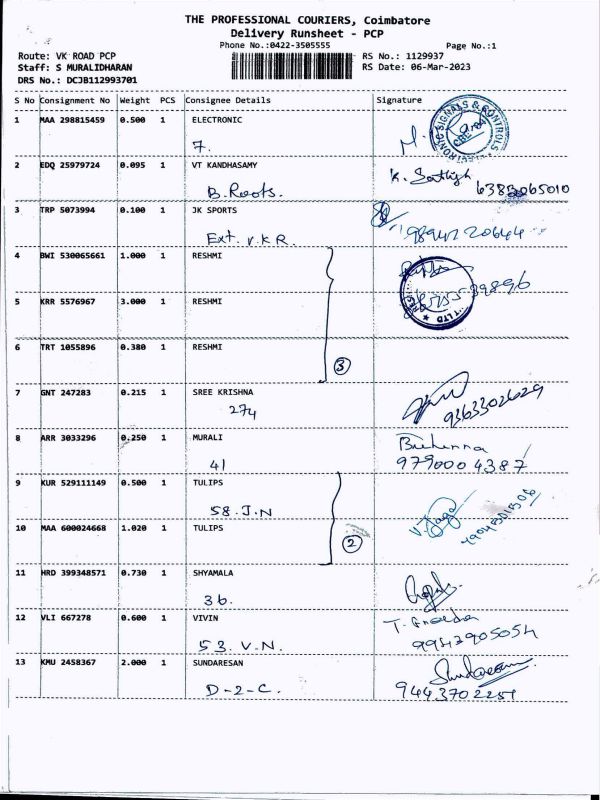 THE PROFESSIONAL COURIERS, Coimbatore
Delivery Runsheet - PCP
Phone No.:0422-3505555 Page No.:1
Route: VK ROAD PCP RS No.: 1129937
Staff: S MURALIDHARAN RS Date: 06-Mar-2023
DRS No.: DCJB112993701
S No Consignment No Weight PCS Consignee Details Signature
1 MAA 298815459 0.500 1 ELECTRONIC
7.
2 EDQ 25979724 0.095 1 VT KANDHASAMY
B.Roots. K. Sathish 6385065010
3 TRP 5073994 0.100 1 JK SPORTS
Ext. V.K.R. 9894220644
4 BWI 530065661 1.000 1 RESHMI
5 KRR 5576967 3.000 1 RESHMI
6 TRT 1055896 0.380 1 RESHMI
3
7 GNT 247283 0.215 1 SREE KRISHNA
274 9363302629
8 ARR 3033296 0.250 1 MURALI
41 9790004387
9 KUR 529111149 0.500 1 TULIPS
58.J.N V.Jaga
10 MAA 600024668 1.020 1 TULIPS
2
11 HRD 399348571 0.730 1 SHYAMALA
36.
12 VLI 667278 0.600 1 VIVIN
53. V.N. 9942905054
13 KMU 2458367 2.000 1 SUNDARESAN
D-2-C. Sundaresan
9443702251